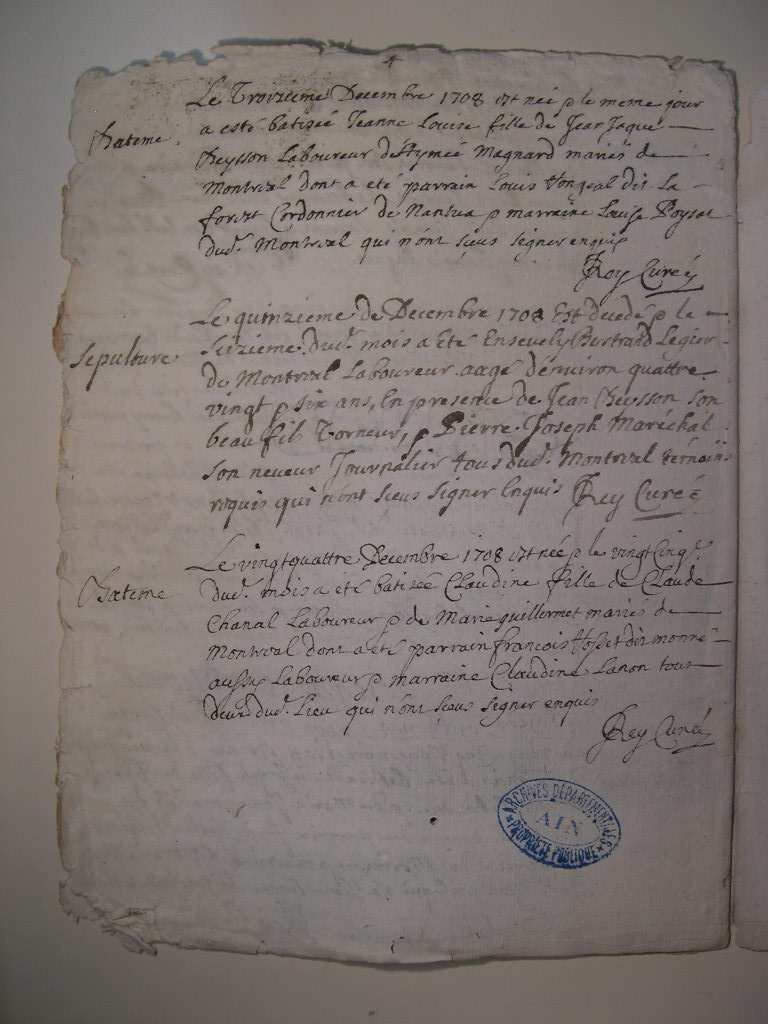 4
Bateme
Le Troizieme Decembre 1708 est née p le meme jour
a esté batizée Jeanne Louise fille de Jean Jaque
Reysson Laboureur d'Aymeé Magnard mariés de
Montreal dont a eté parrain Louis dit La
forest Cordonnier de Nantua p marraine Louise
dud. Montreal qui n'ont sçeus signer enquis
Rey Cureé
Sepulture
Le quinzieme de Decembre 1708 Est decedé p le
Seizieme dud. mois a Eté Ensevely Bertrand Leger
de Montreal Laboureur aagé d'environ quattre
vingt p six ans, En presence de Jean Reysson son
beau fils Torneur, p Pierre Joseph Maréchal
son neveur Journalier tous dud. Montreal témoins
requis qui n'ont sceus signer Enquis Rey Cureé
Bateme
Le vingtquattre Decembre 1708 est née p le vingtCinq.
dud. mois a eté batizée Claudine fille de Claude
Chanal Laboureur p de Marie quillermet mariés de
Montreal dont a eté parrain francois dit
aussy Laboureur p marraine Claudine tous
deux dud. Lieu qui n'ont sceus signer enquis
Rey Cureé
ARCHIVES DÉPARTEMENTALES
AIN
PROPRIÉTÉ PUBLIQUE